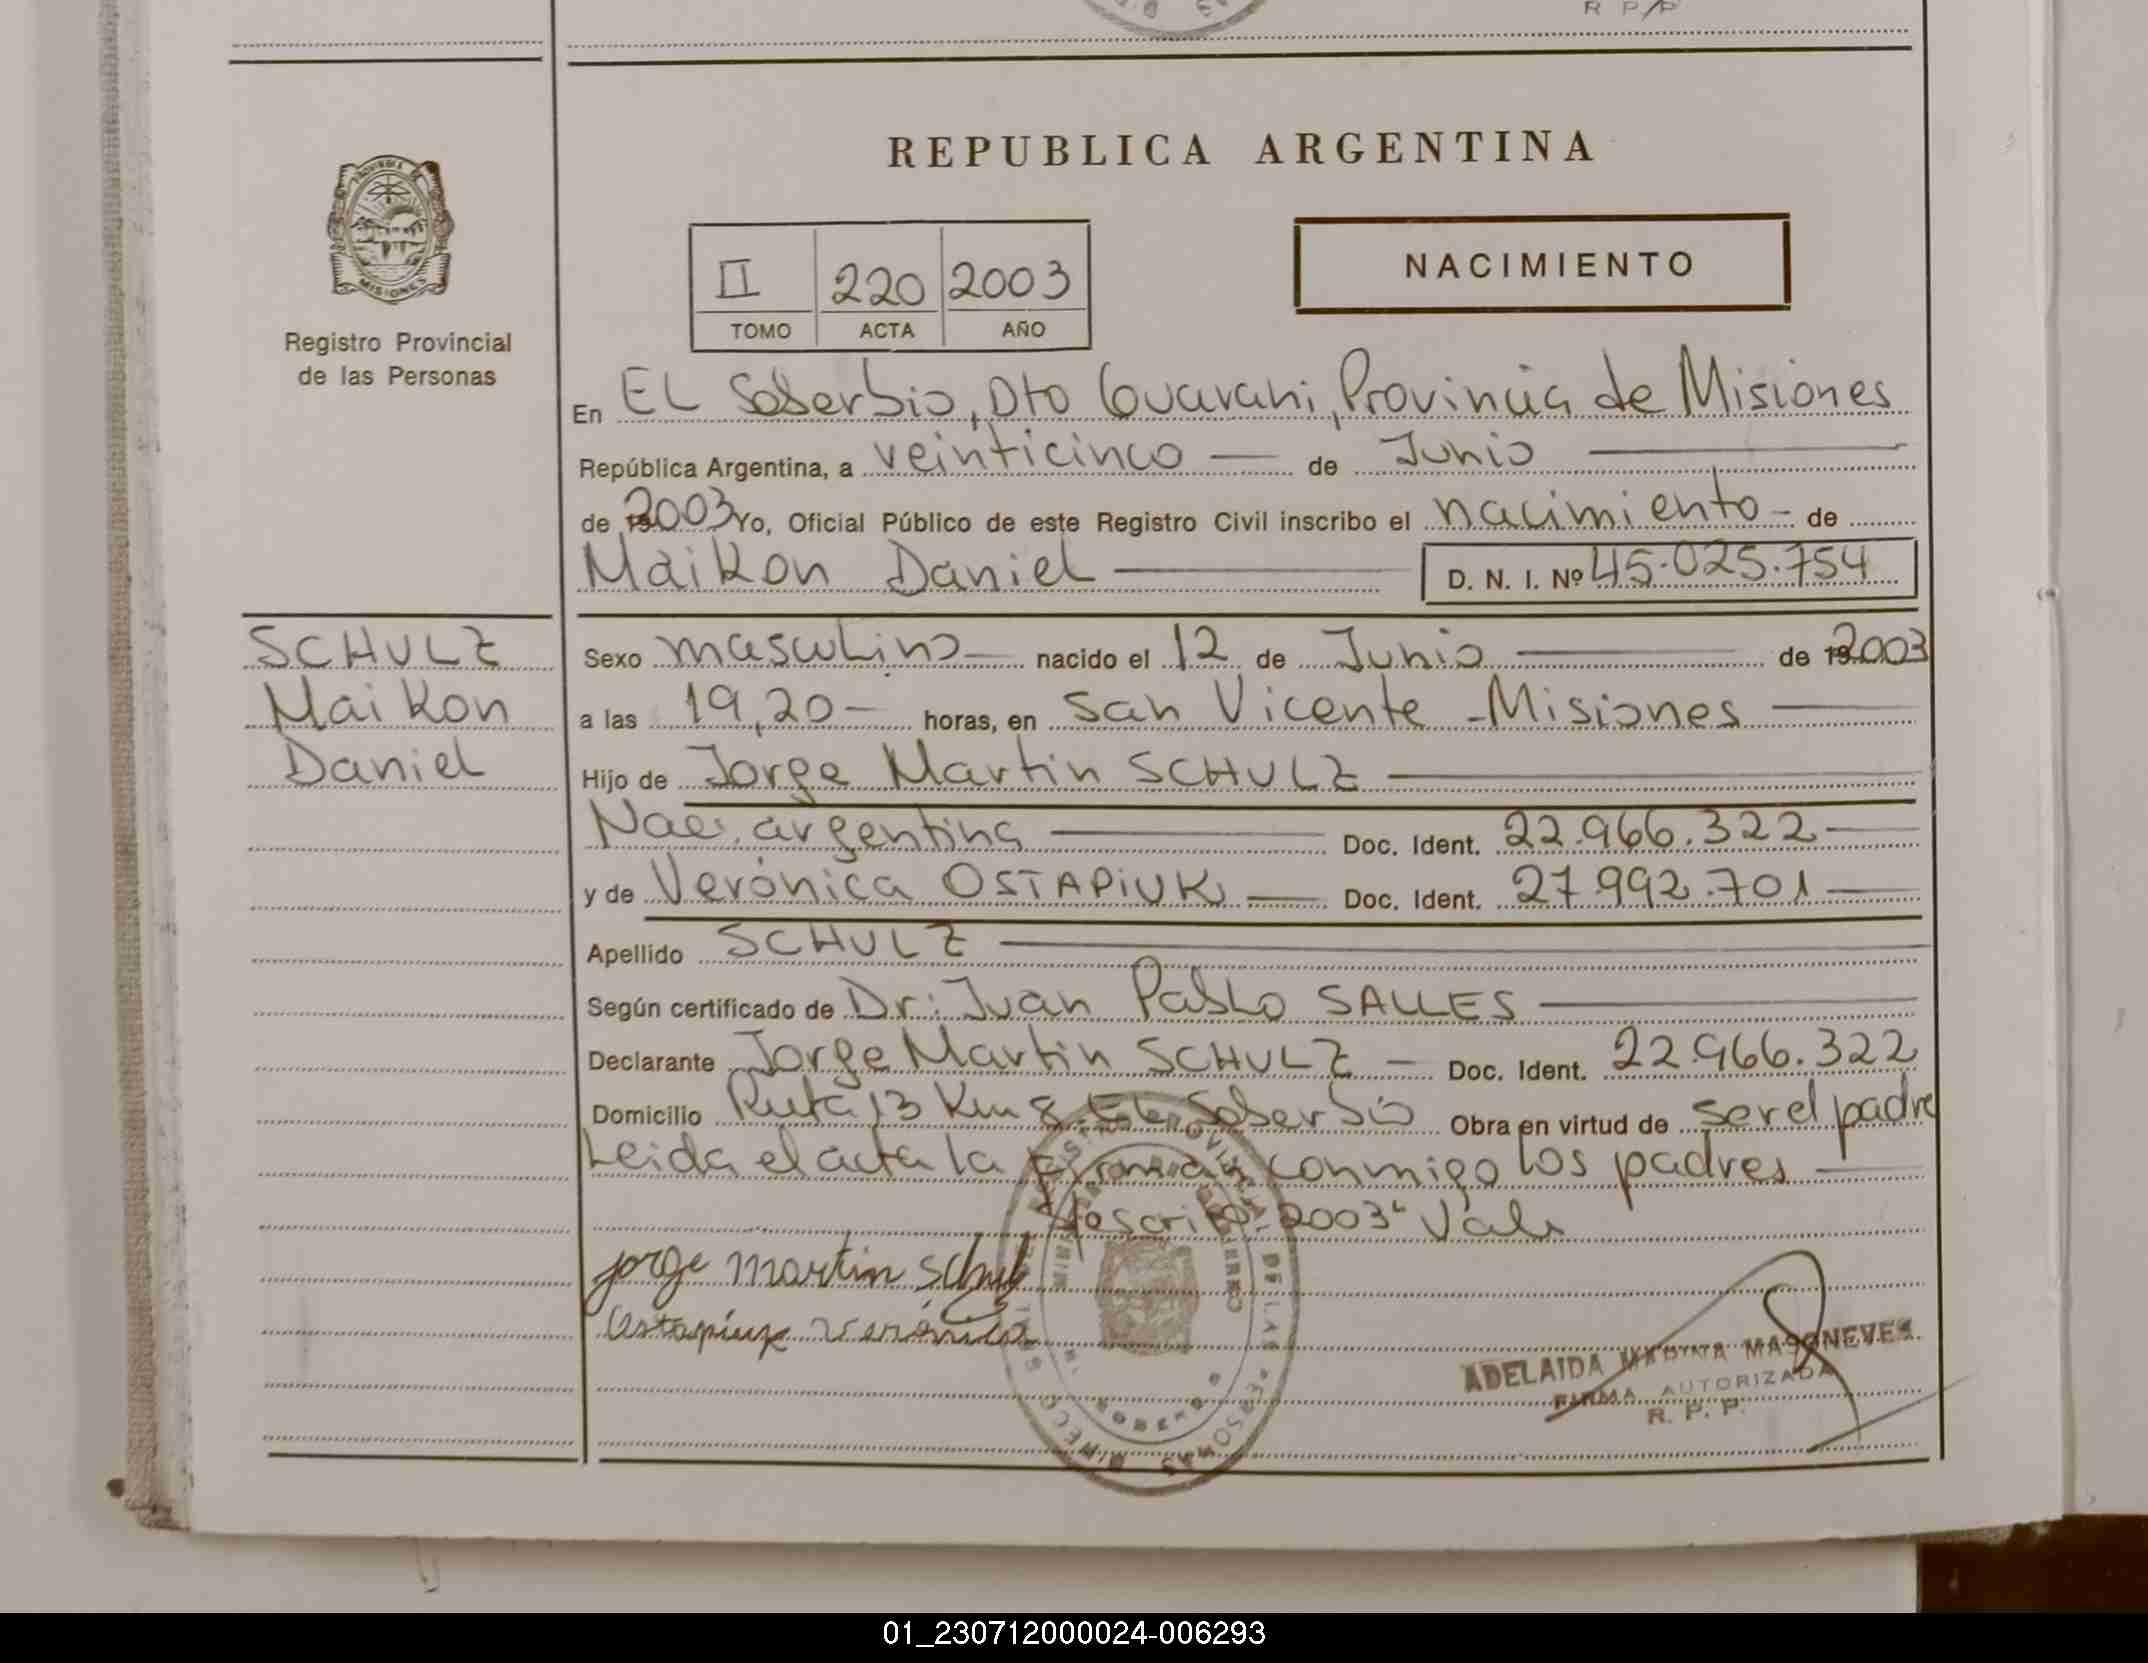 R P/P
REPUBLICA ARGENTINA
PROVINCIA DE MISIONES
Registro Provincial
de las Personas
II 220 2003
TOMO ACTA AÑO
NACIMIENTO
En EL Soberbio, Dto Guarani, Provincia de Misiones
República Argentina, a veinticinco — de Junio
de 2003 Yo, Oficial Público de este Registro Civil inscribo el nacimiento - de
Maikon Daniel — D. N. I. Nº 45.025.754
SCHULZ
Maikon
Daniel
Sexo masculino — nacido el 12 de Junio — de 192003
a las 19,20 — horas, en San Vicente - Misiones —
Hijo de Jorge Martin SCHULZ —
Nac. argentina — Doc. Ident. 22.966.322 —
y de Verónica OSTAPIUK — Doc. Ident. 27.992.701 —
Apellido SCHULZ —
Según certificado de Dr: Juan Pablo SALLES —
Declarante Jorge Martin SCHULZ — Doc. Ident. 22.966.322
Domicilio Ruta 13 Km 8 EL Soberbio Obra en virtud de ser el padre
Leida el acta la firman conmigo los padres —
2003" Vale
jorge martin Schulz
Ostapiuk Verónica
ADELAIDA MASONEVES
FIRMA AUTORIZADA
R. P. P.
01_230712000024-006293